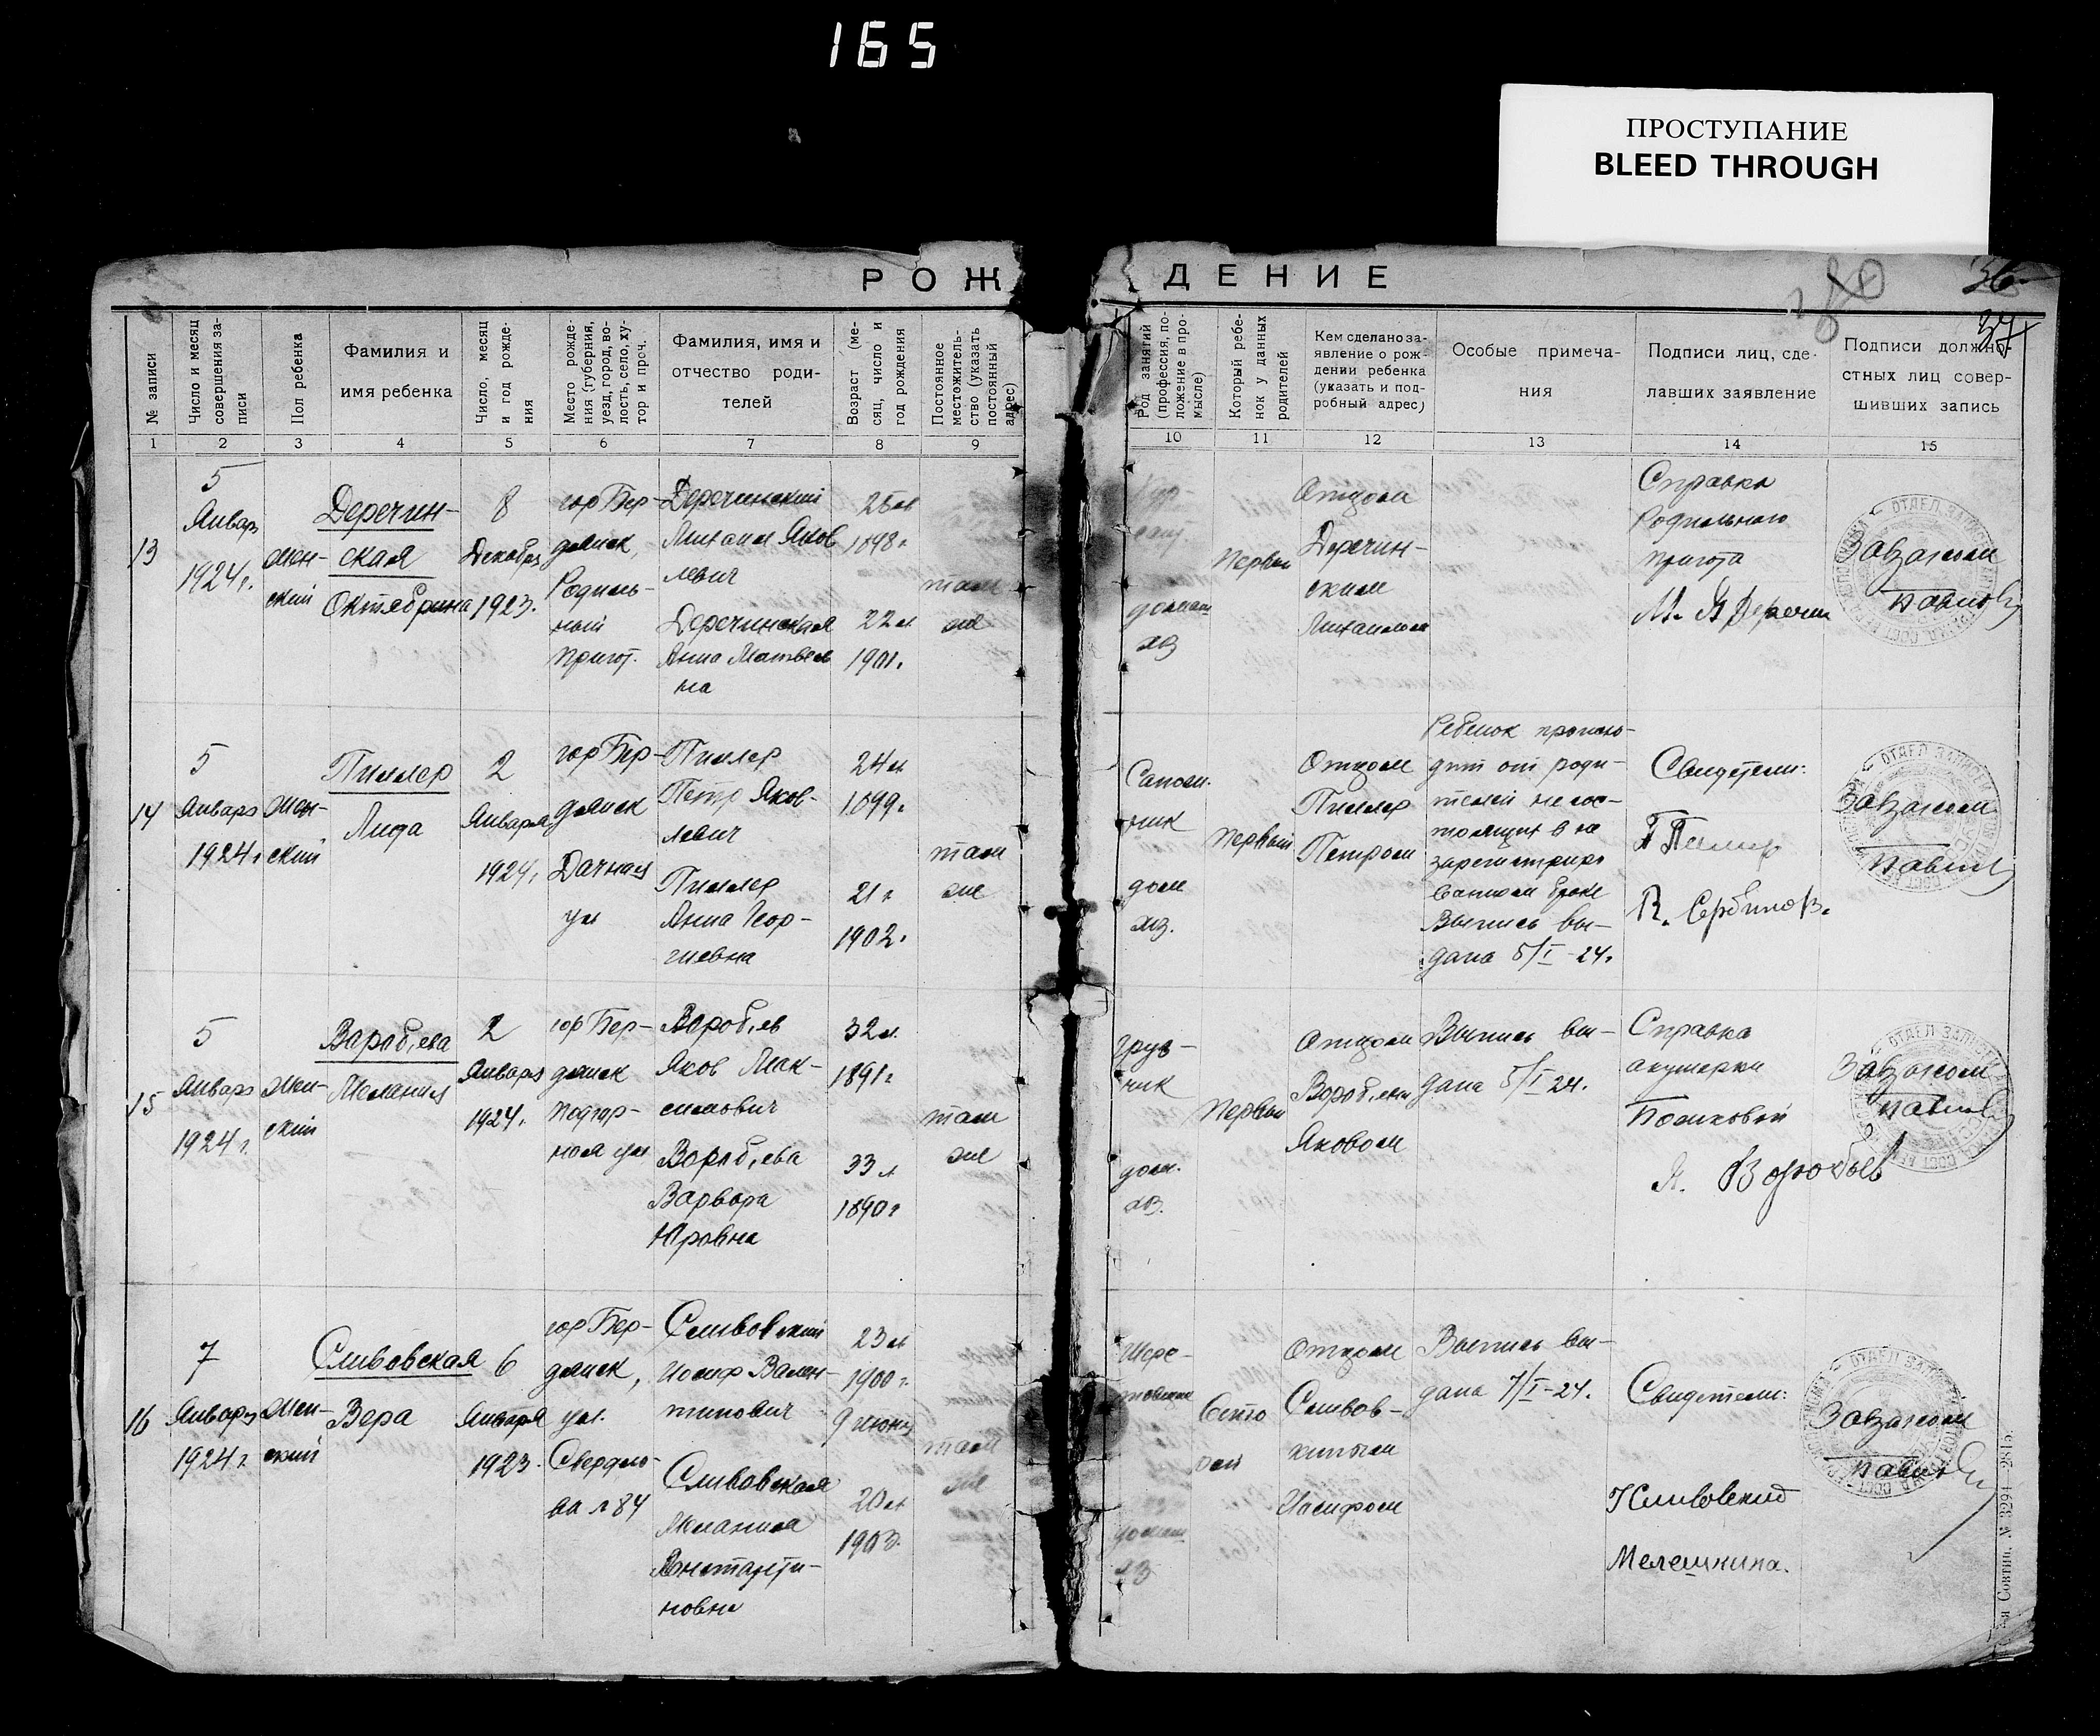 165
ПРОСТУПАНИЕ
BLEED THROUGH
РОЖДЕНИЕ
36
37
№ записи
Число и месяц совершения записи
Пол ребенка
Фамилия и
имя ребенка
Число, месяц и год рождения
Место рождения (губерния, уезд, город, волость, село, хутор и проч.
Фамилия, имя и
отчество роди-
телей
Возраст (месяц, число и год рождения
Постоянное местожительство (указать постоянный адрес)
Род занятий (профессия, положение в промысле)
Который ребенок у данных родителей
Кем сделано за-
явление о рож-
дении ребенка
(указать и под-
робный адрес)
Особые примеча-
ния
Подписи лиц, сде-
лавших заявление
Подписи должно-
стных лиц совер-
шивших запись
1 2 3 4 5 6 7 8 9 10 11 12 13 14 15
13
5
Январ
1924г.
жен-
ский
Деречин-
ская
Октябрина
8
Декабря
1923.
гор Бер-
дянск,
Родиль-
ный
приют.
Деречинский
Михаил Яков
левич
Деречинская
Анна Матвеев
на
25 л
1898г
22 л
1901.
там
же
домаш
хоз
Первый
Отцом
Деречин-
ским
Михаилом
Справка
Родильного
приюта
М. Я Деречин
Завзагсом
14
5
Января
1924г
жен-
ский
Пиллер
Лида
2
Января
1924,
гор Бер-
дянск
Дачная
ул
Пиллер
Петр Яков-
левич
Пиллер
Анна Геор-
гиевна
24 л
1899.
21 г
1902.
там
же
Сапож.
ник
дом
хоз.
Первый
Отцом
Пиллер
Петром
Ребенок происхо-
дит от роди-
телей не сос-
тоящих в за
зарегистриро
ванном браке
Выпись вы-
дана 5/I-24.
Свидетели:
Завзагсом
15
5
Января
1924г.
жен-
ский
Вароб,ева
Мелания
2
Января
1924.
гор Бер-
дянск
Подгор-
ная ул
Вороб,ев
Яков Мак-
симович
Вороб,ева
Варвара
Юровна
32 л.
1891г
33 л
1890г
там
же
груз-
чик
дом.
хоз.
Первый
Отцом
Вороб,евым
Яковом
Выпись вы-
дана 5/I 24.
Справка
акушерки
Я. Воробьев
Завзагсом
16
7
Января
1924г.
жен-
ский
Сливовская
Вера
6
Января
1923.
гор Бер-
дянск,
ул.
Свердло-
ва №84
Сливовский
Иосиф Вален-
тинович
Сливовская
Мелания
Константи-
новна
23 л
1900г.
9 июня
20 л
1903.
там
же
домаш
хоз
Отцом
Сливов-
скимым
Иосифом
Выпись вы-
дана 7/I-24.
Свидетели:
Мелешкина.
Завзагсом